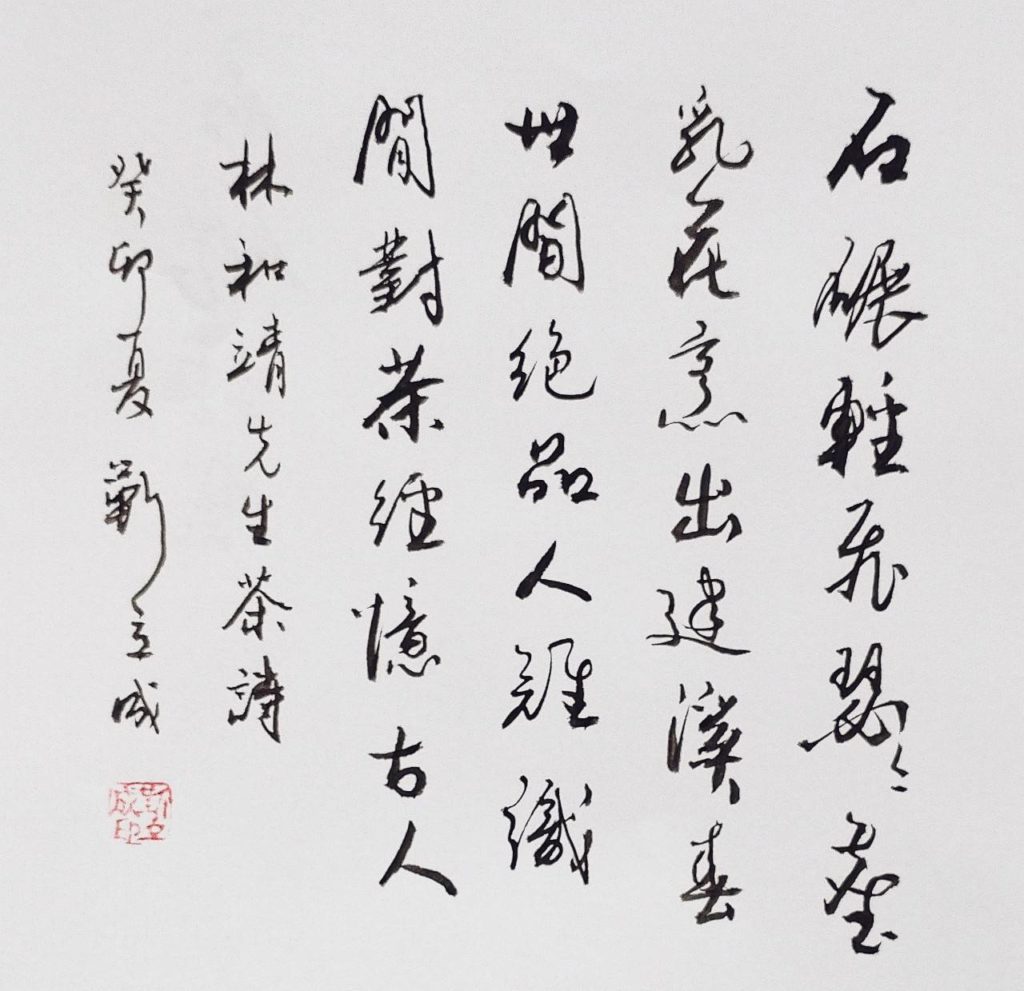 石碾輕飛瑟々塵
乳花烹出建溪春
世間絶品人難織
閒對茶經憶古人
林和靖先生茶詩
癸卯夏 靳立成
靳立成印